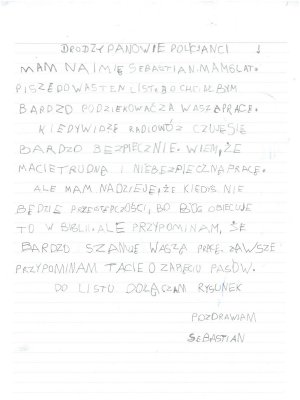 DRODZY PANOWIE POLICJANCI
MAM NA IMIĘ SEBASTIAN. MAM 8 LAT.
PISZĘ DO WAS TEN LIST. BO CHCIAŁBYM
BARDZO PODZIĘKOWAĆ ZA WASZĄ PRACĘ.
KIEDY WIDZĘ RADIOWÓZ CZUJĘ SIĘ
BARDZO BEZPIECZNIE. WIEM, ŻE
MACIE TRUDNĄ I NIEBEZPIECZNĄ PRACĘ.
ALE MAM NADZIEJĘ, ŻE KIEDYŚ NIE
BĘDZIE PRZESTĘPCZOŚCI, BO BÓG OBIECUJE
TO W BIBLII. ALE PRZYPOMINAM, ŻE
BARDZO SZANUJĘ WASZĄ PRACĘ. ZAWSZE
PRZYPOMINAM TACIE O ZAPIĘCIU PASÓW.
DO LISTU DOŁĄCZAM RYSUNEK
POZDRAWIAM
SEBASTIAN